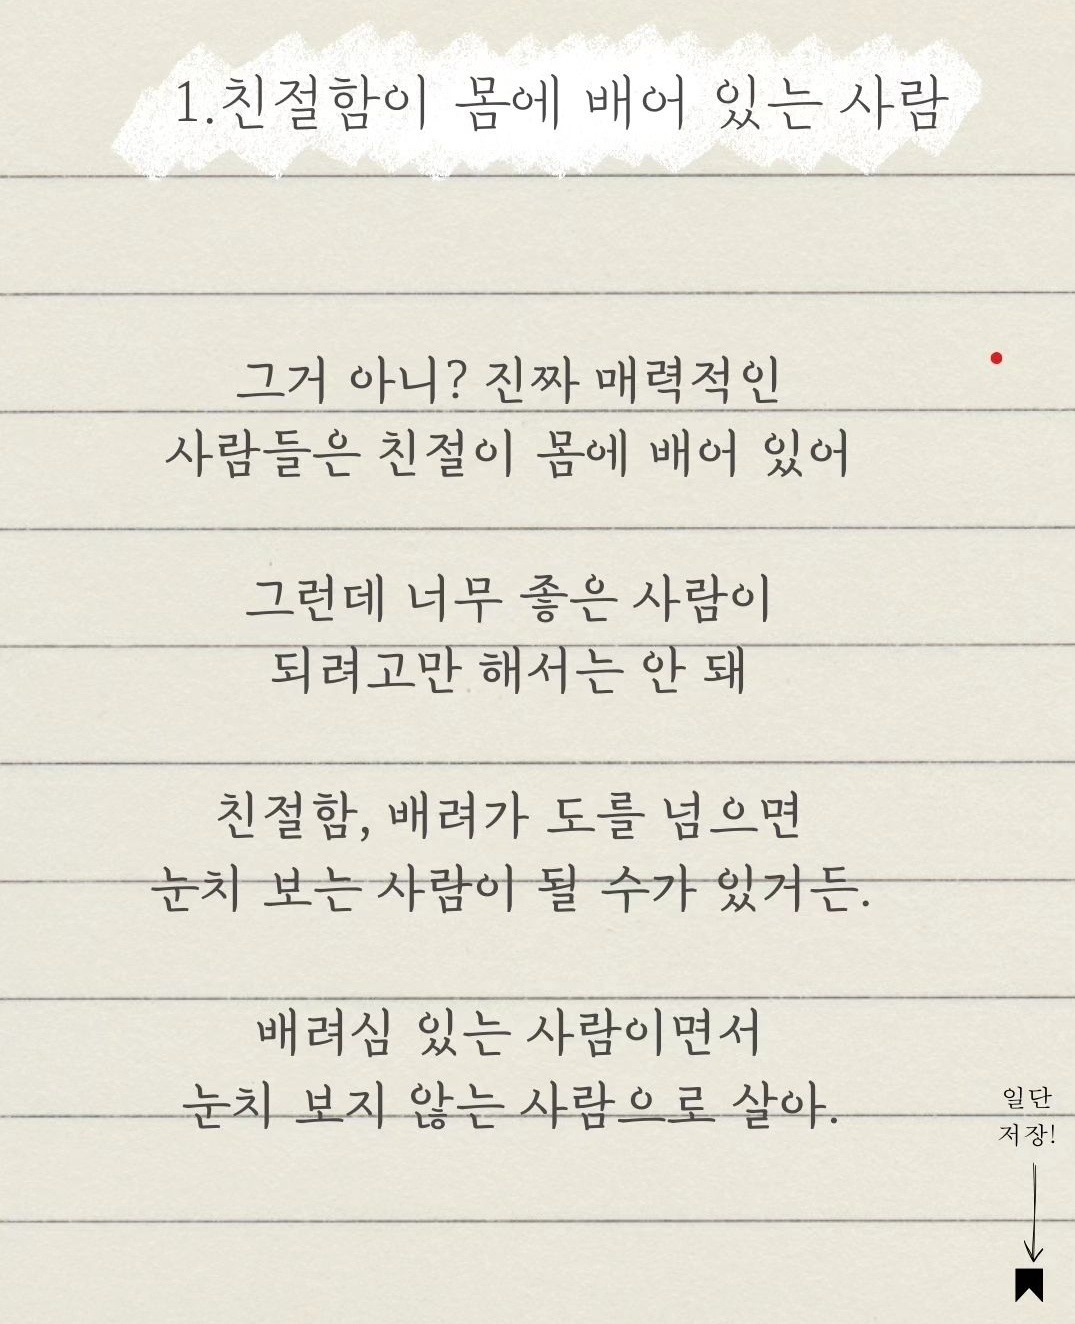 1.친절함이 몸에 배어 있는 사람
그거 아니? 진짜 매력적인
사람들은 친절이 몸에 배어 있어
그런데 너무 좋은 사람이
되려고만 해서는 안 돼
친절함, 배려가 도를 넘으면
눈치 보는 사람이 될 수가 있거든.
배려심 있는 사람이면서
눈치 보지 않는 사람으로 살아.
일단
저장!